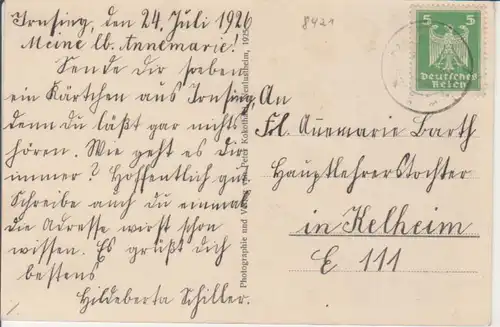 Irnsing, den 24. Juli 1926
Meine lb. Annemarie!
Sende dir soeben
ein Kärtchen aus Irnsing,
denn du läßt gar nichts
hören. Wie geht es dir
immer? Hoffentlich gut.
Schreibe auch du einmal
die Adresse wirst schon
wissen. Es grüßt dich
bestens
Hildeberta Schiller.
Photographie und Verlag von Peter 1925
8421
5 5
Deutsches
Reich
An
Frl. Annemarie Barth
Hauptlehrerstochter
in Kelheim
E 111